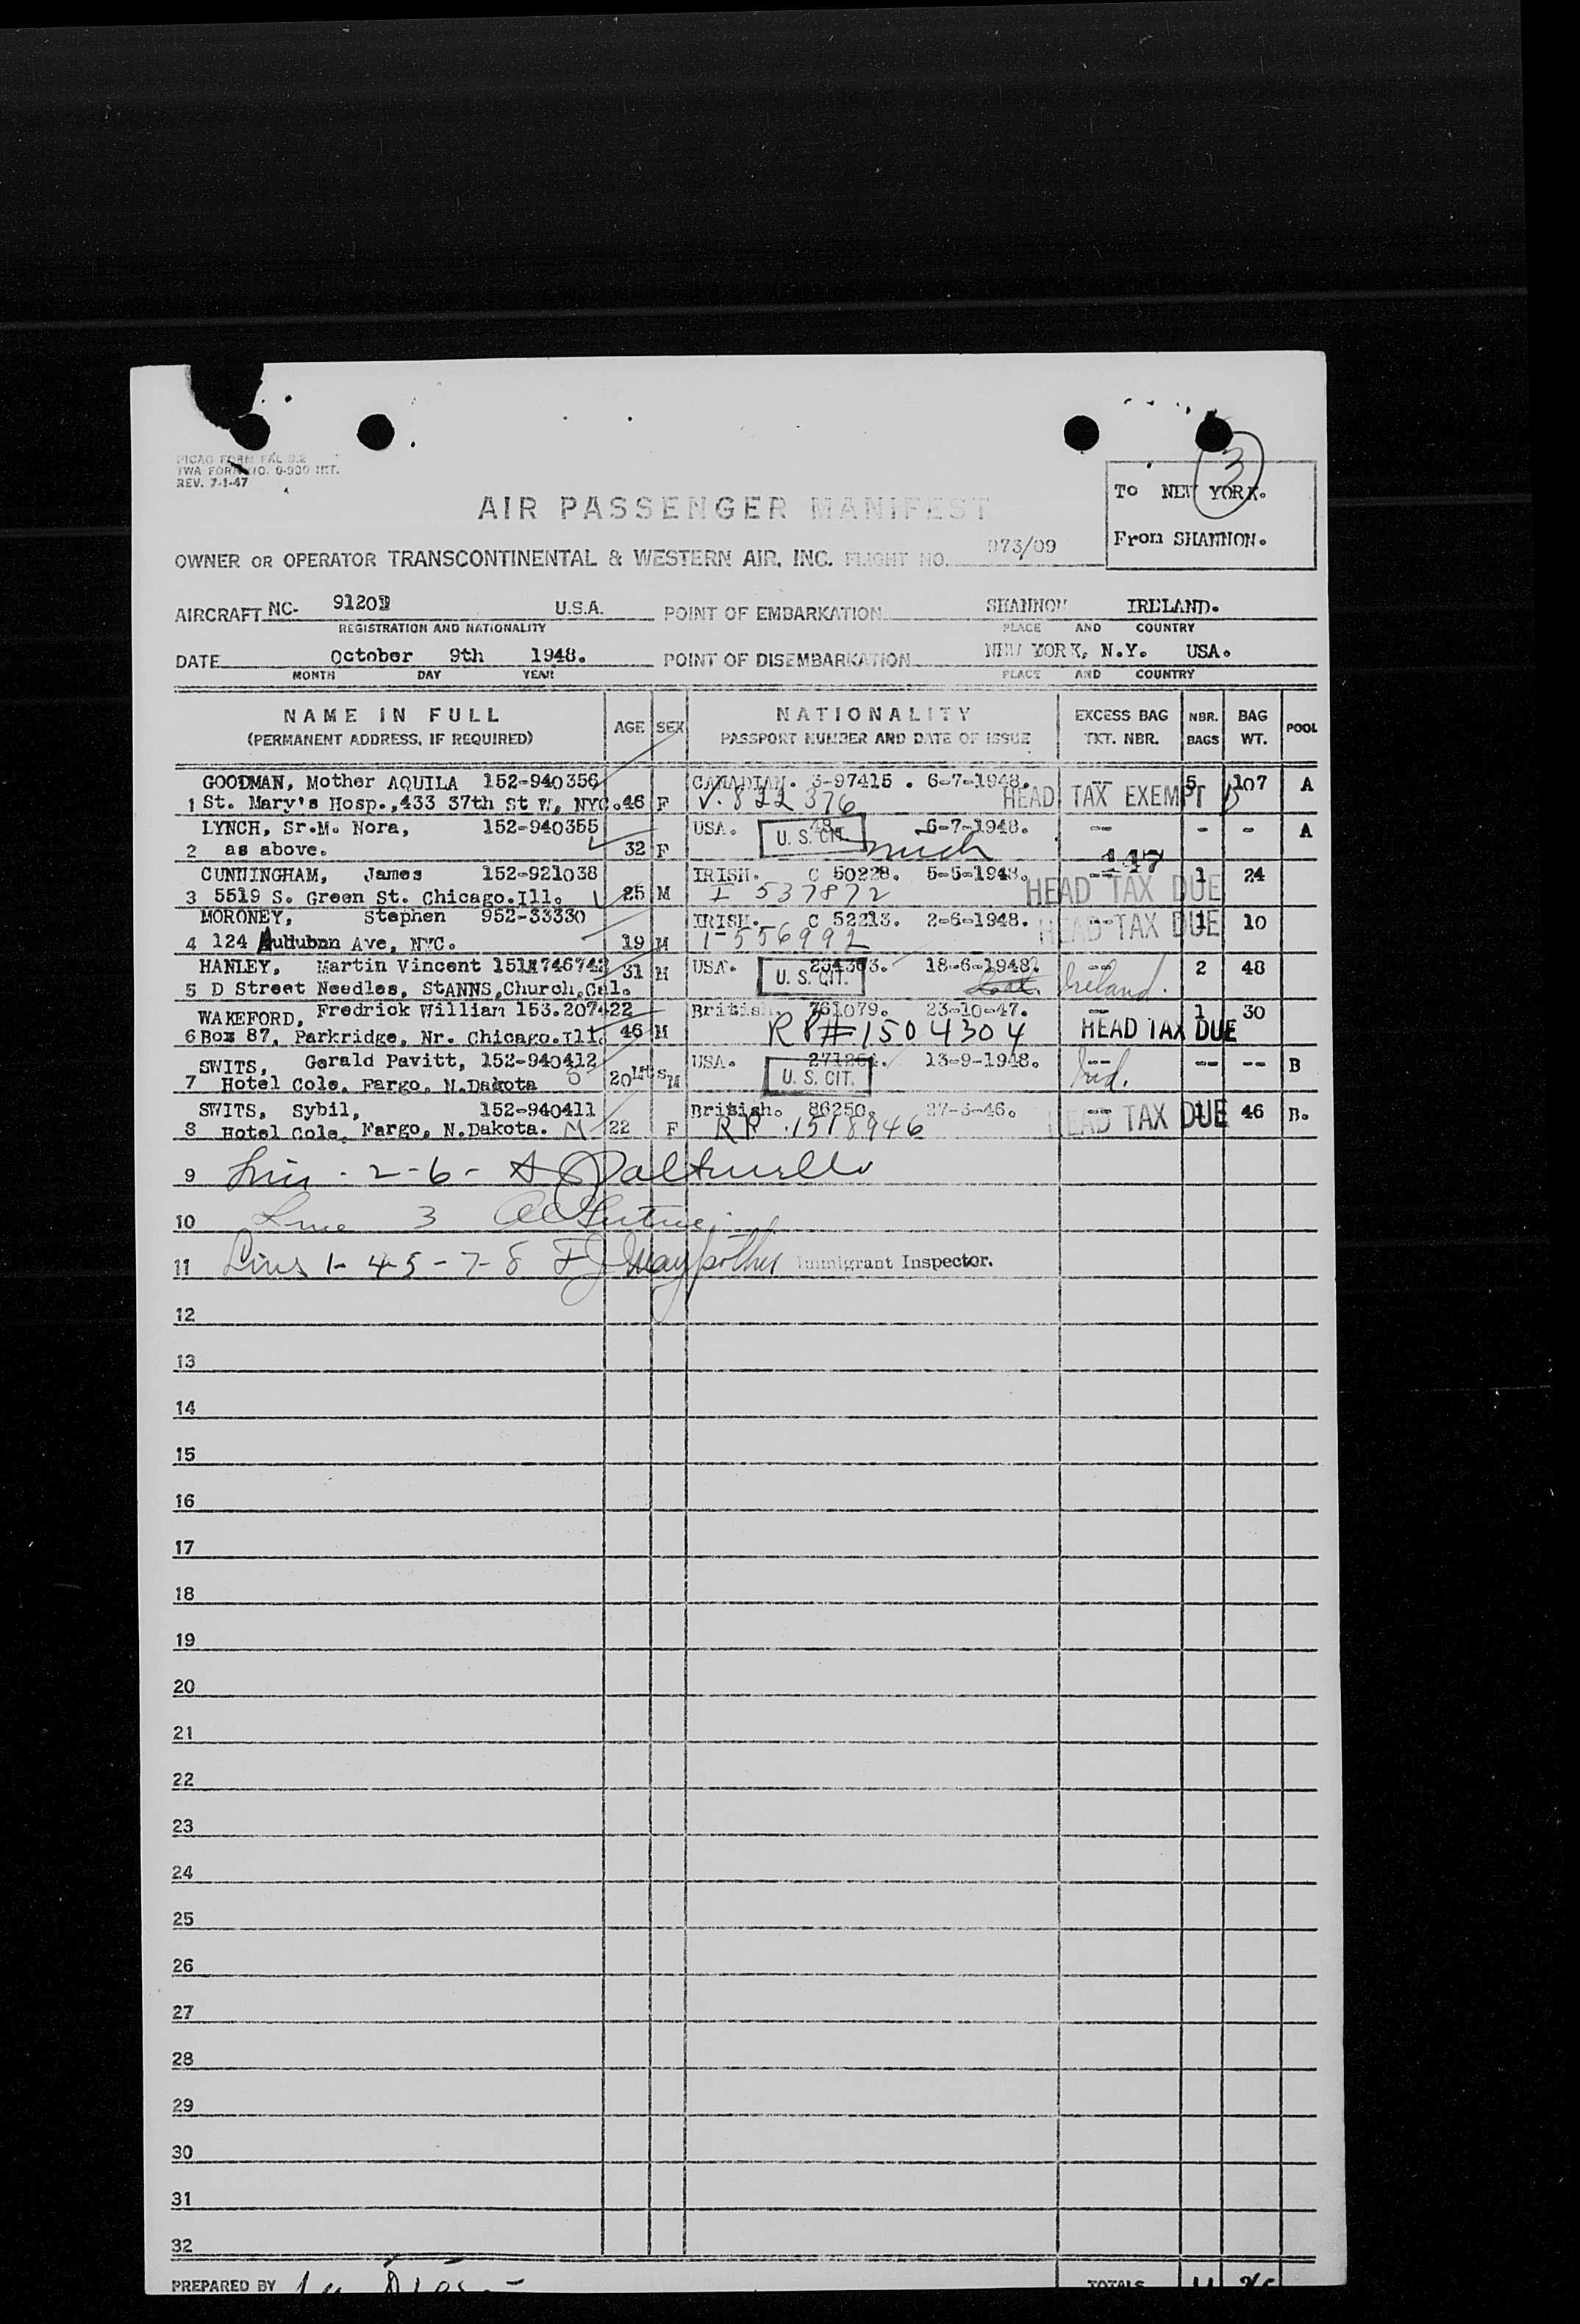 PICAO FORM FAL 3.2
TWA FORM NO. O-900 INT.
REV. 7-1-47
3
To NEW YORK.
From SHANNON.
AIR PASSENGER MANIFEST
OWNER OR OPERATOR TRANSCONTINENTAL & WESTERN AIR, INC. FLIGHT NO. 973/09
AIRCRAFT NC- 9120 U.S.A. POINT OF EMBARKATION SHANNON IRELAND.
REGISTRATION AND NATIONALITY PLACE AND COUNTRY
DATE October 9th 1948. POINT OF DISEMBARKATION NEW YORK, N.Y. USA.
MONTH DAY YEAR PLACE AND COUNTRY
NAME IN FULL AGE SEX NATIONALITY EXCESS BAG NBR. BAG POOL
(PERMANENT ADDRESS, IF REQUIRED) PASSPORT NUMBER AND DATE OF ISSUE TKT. NBR. BAGS WT.
GOODMAN, Mother AQUILA 152-940356 CANADIAN. 3-97415 . 6-7-1948. -- 5 107 A
1 St. Mary's Hosp.,433 37th St W, NYC. 46 F V. 822376 HEAD TAX EXEMPT
LYNCH, Sr.M. Nora, 152-940355 USA. 6-7-1948. -- - - A
2 as above. 32 F U. S. CIT.
147
CUNNINGHAM, James 152-921038 IRISH. C 50228. 5-5-1948. -- 1 24
3 5519 S. Green St. Chicago.Ill. 25 M I 537872 HEAD TAX DUE
MORONEY, Stephen 952-33330 IRISH. C 52213. 2-6-1948. -- 1 10
4 124 Audubnn Ave, NYC. 19 M I-556992 HEAD TAX DUE
HANLEY, Martin Vincent 31 M USA. 254303. 18-6-1948. -- 2 48
5 D Street Needles, StANNS,Church,Cal. U. S. CIT. Ireland.
WAKEFORD, Fredrick William 153.207422 British. 761079. 23-10-47. -- 1 30
6 Box 87, Parkridge, Nr. Chicago.Ill. 46 M RP#1504304 HEAD TAX DUE
SWITS, Gerald Pavitt, 152-940412 USA. 13-9-1948. -- -- -- B
7 Hotel Cole, Fargo, N.Dakota 20Mths M U. S. CIT.
SWITS, Sybil, 152-940411 British. 86250. 27-3-46. -- 1 46 B.
8 Hotel Cole, Fargo, N.Dakota. M 22 F RP 1518946 HEAD TAX DUE
9 - 2-6-
10 Line 3
11 Lines 1-4-5-7-8 Immigrant Inspector.
12
13
14
15
16
17
18
19
20
21
22
23
24
25
26
27
28
29
30
31
32
PREPARED BY TOTALS 11